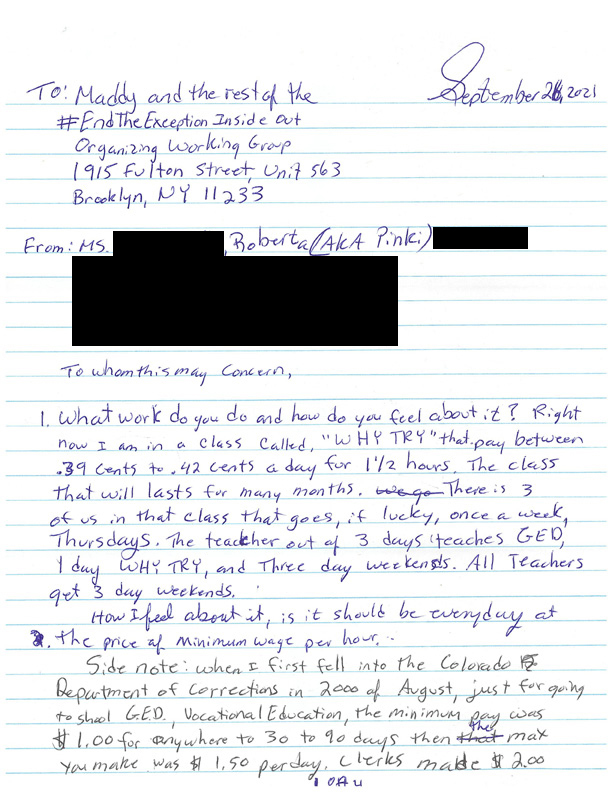 September 26, 2021
To: Maddy and the rest of the
#EndTheException Inside Out
Organizing Working Group
1915 Fulton Street, Unit 563
Brooklyn, NY 11233
From: Ms. , Roberta (AKA Pinki)
To whom this may concern,
1. What work do you do and how do you feel about it? Right
now I am in a class called, "WHY TRY" that pay between
.39 cents to .42 cents a day for 1 1/2 hours. The class
that will lasts for many months. We go There is 3
of us in that class that goes, if lucky, once a week,
Thursdays. The teacher out of 3 days teaches GED,
1 day WHY TRY, and Three day weekends. All Teachers
get 3 day weekends.
How I feel about it, is it should be everyday at
2. the price of minimum wage per hour.
Side note: when I first fell into the Colorado
Department of Corrections in 2000 of August, just for going
to shool G.E.D., Vocational Education, the minimum pay was
$1.00 for anywhere to 30 to 90 days then that the max
you make was $1.50 per day. Clerks made $2.00
1 OF 4